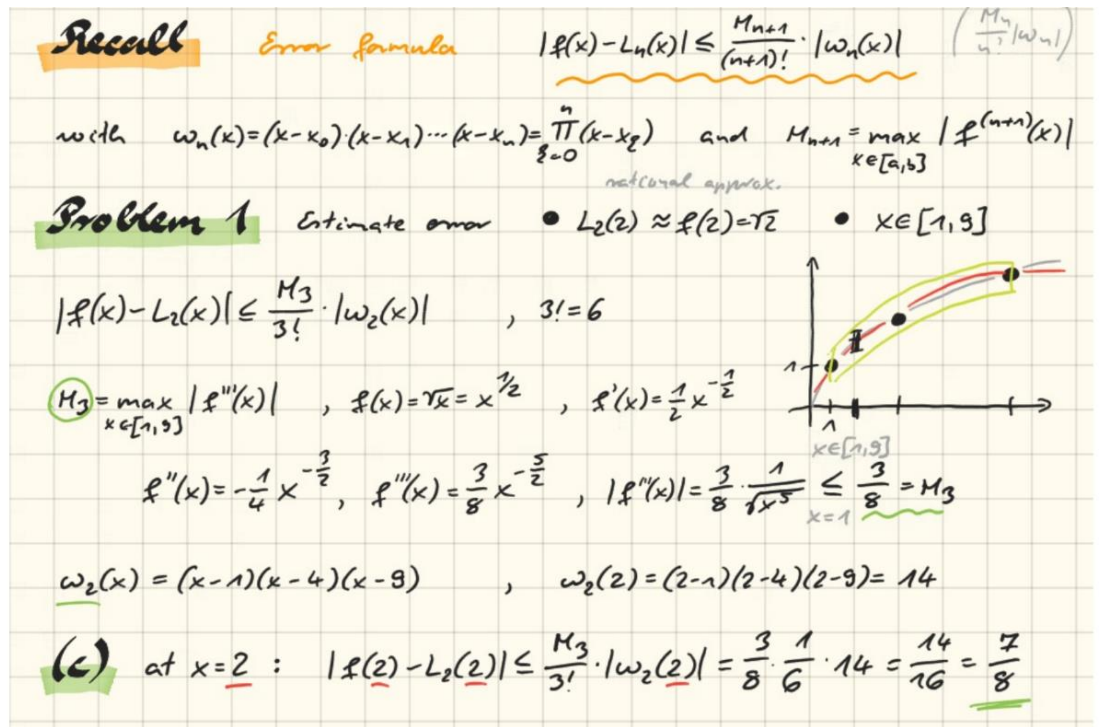 Recall Error formula |f(x)-L_n(x)| ≤ M_{n+1}/(n+1)! · |ω_n(x)| (M_n/n! |ω_n|)
with ω_n(x)=(x-x_0)·(x-x_1)···(x-x_n)=∏_{k=0}^{n}(x-x_k) and M_{n+1}=max_{x∈[a,b]} |f^{(n+1)}(x)|
rational approx.
Problem 1 Estimate error • L_2(2) ≈ f(2)=√2 • x∈[1,9]
|f(x)-L_2(x)| ≤ M_3/3! · |ω_2(x)| , 3!=6
M_3 = max_{x∈[1,9]} |f'''(x)| , f(x)=√x=x^{1/2} , f'(x)=1/2 x^{-1/2}
1
1
x∈[1,9]
f''(x)=-1/4 x^{-3/2}, f'''(x)=3/8 x^{-5/2} , |f'''(x)|=3/8 · 1/√x^5 ≤ 3/8 = M_3
x=1
ω_2(x) = (x-1)(x-4)(x-9) , ω_2(2)=(2-1)(2-4)(2-9)= 14
(c) at x=2 : |f(2)-L_2(2)| ≤ M_3/3! · |ω_2(2)| = 3/8 · 1/6 · 14 = 14/16 = 7/8